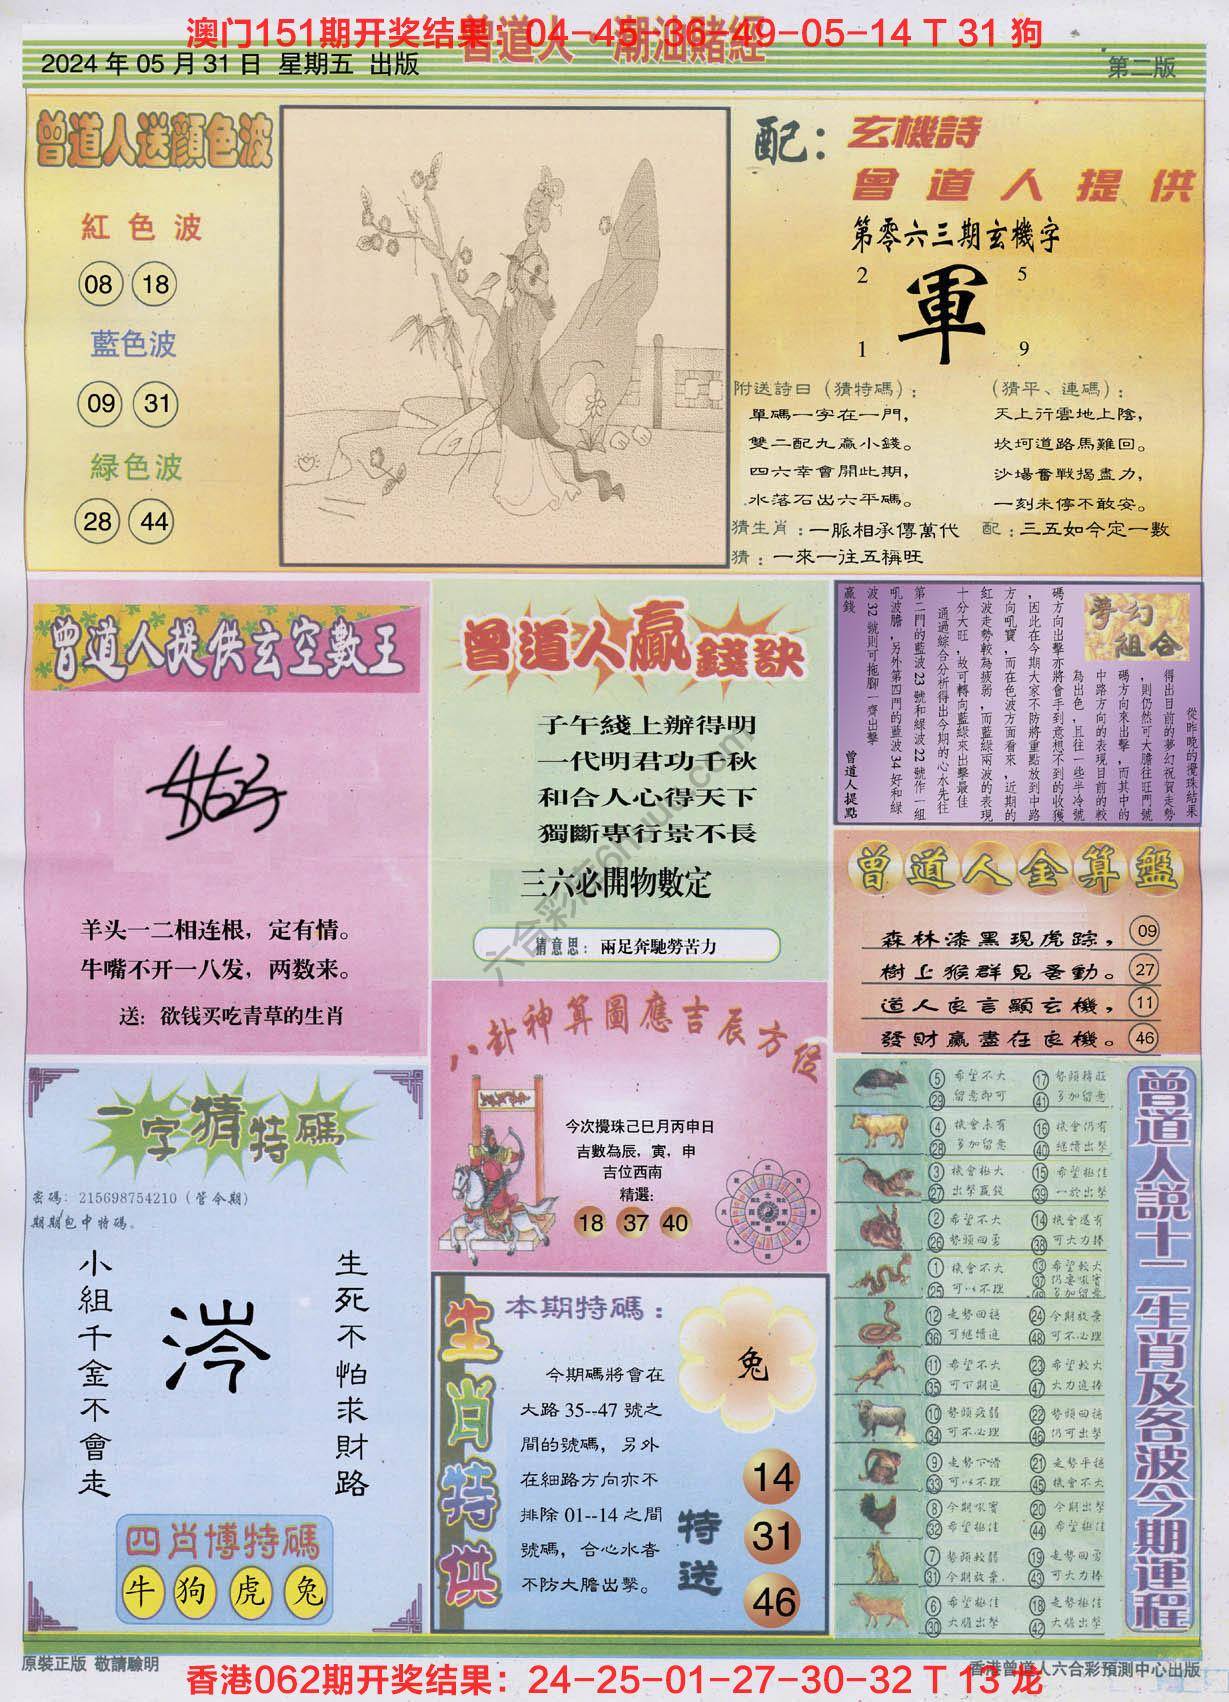 澳门151期开奖结果：04-45-36-49-05-14 T 31 狗
曾道人·潮汕賭經
2024 年 05 月 31 日 星期五 出版
第二版
曾道人送顏色波
紅色波
08 18
藍色波
09 31
緑色波
28 44
配：
玄機詩
曾道人提供
第零六三期玄機字
2 5
軍
1 9
附送詩曰（猜特碼）：
單碼一字在一門，
雙二配九贏小錢。
四六幸會開此期，
水落石出六平碼。
（猜平、連碼）：
天上行雲地上陰，
坎坷道路馬難回。
沙場奮戰揭盡力，
一刻未停不敢安。
猜生肖：一脈相承傳萬代
配：三五如今定一數
猜：一來一往五稱旺
曾道人提供玄空數王
羊头一二相连根，定有情。
牛嘴不开一八发，两数来。
送：欲钱买吃青草的生肖
曾道人贏錢訣
子午綫上辦得明
一代明君功千秋
和合人心得天下
獨斷專行景不長
三六必開物數定
猜意思：兩足奔馳勞苦力
六合彩票6huuc.com
夢幻組合
從昨晚的攪珠結果
得出目前的夢幻祝賀走勢
，則仍然可大膽往旺門號
碼方向來出擊，而其中的
中路方向的表現目前的較
為出色，且往一些半冷號
碼方向出擊亦將會手到意想不到的收獲
，因此在今期大家不防將重點放到中路
方向吼寶，而在色波方面看來，近期的
紅波走勢較為疲弱，而藍綠兩波的表現
十分大旺，故可轉向藍綠來出擊最佳
通過綜合分析得出今期的心水先往
第二門的藍波 23 號和綠波 22 號作一組
吼波膽，另外第四門的藍波 34 好和綠
波 32 號則可拖腳一齊出擊
贏錢
曾道人提點
曾道人金算盤
森林漆黑現虎踪， 09
樹上猴群見蚤動。 27
道人良言顯玄機， 11
發財贏盡在良機。 46
八卦神算圖應吉辰方位
今次攪珠己巳月丙申日
吉數為辰，寅，申
吉位西南
精選：
18 37 40
一字猜特碼
密碼：215698754210（管令期）
期期包中特碼。
小組千金不會走
涔
生死不怕求財路
四肖博特碼
牛 狗 虎 兔
生肖特供
本期特碼：
兔
今期碼將會在
大路 35--47 號之
間的號碼，另外
在細路方向亦不
排除 01--14 之間
號碼，合心水者
不防大膽出擊。
特送
14
31
46
曾道人説十二生肖及各波今期運程
5 希望不大 17 勢頭精旺
29 留意即可 41 多加留意
4 機會未有 16 機會仍有
28 多加留意 40 继續出擊
3 機會极大 15 希望极佳
27 出擊贏錢 39 一於出擊
2 希望不大 14 機會還有
26 勢頭回勇 38 可大力捧
1 機會不大 13 希望較大
25 可以不理 37 仍要吼實
49 多加留意
12 走勢回穩 24 今期放棄
36 可继續追 48 可不必理
11 希望不大 23 希望較大
35 可下期追 47 大力追捧
10 勢頭疲弱 22 勢頭回穩
34 可不必理 46 仍可出擊
9 走勢下滑 21 走勢平穩
33 可以不理 45 機會不大
8 今期吼實 20 今期出擊
32 希望极佳 44 希望极佳
7 勢頭較弱 19 走勢回勇
31 今期放棄. 43 可大力捧
6 希望极佳 18 走勢极佳
30 大膽出擊 42 大膽出擊
原裝正版 敬請驗明
香港曾道人六合彩預測中心出版
香港062期开奖结果：24-25-01-27-30-32 T 13 龙